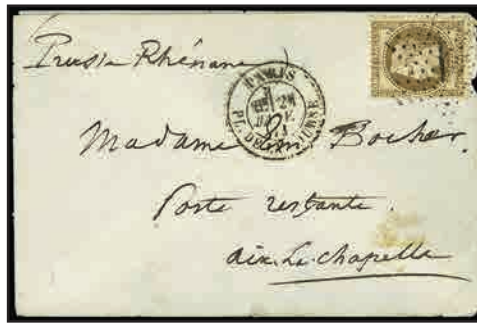 Prusse Rhénane
PARIS
PL. DE LA BOURSE
Madame Bocher.
Poste restante.
aix. La. chapelle